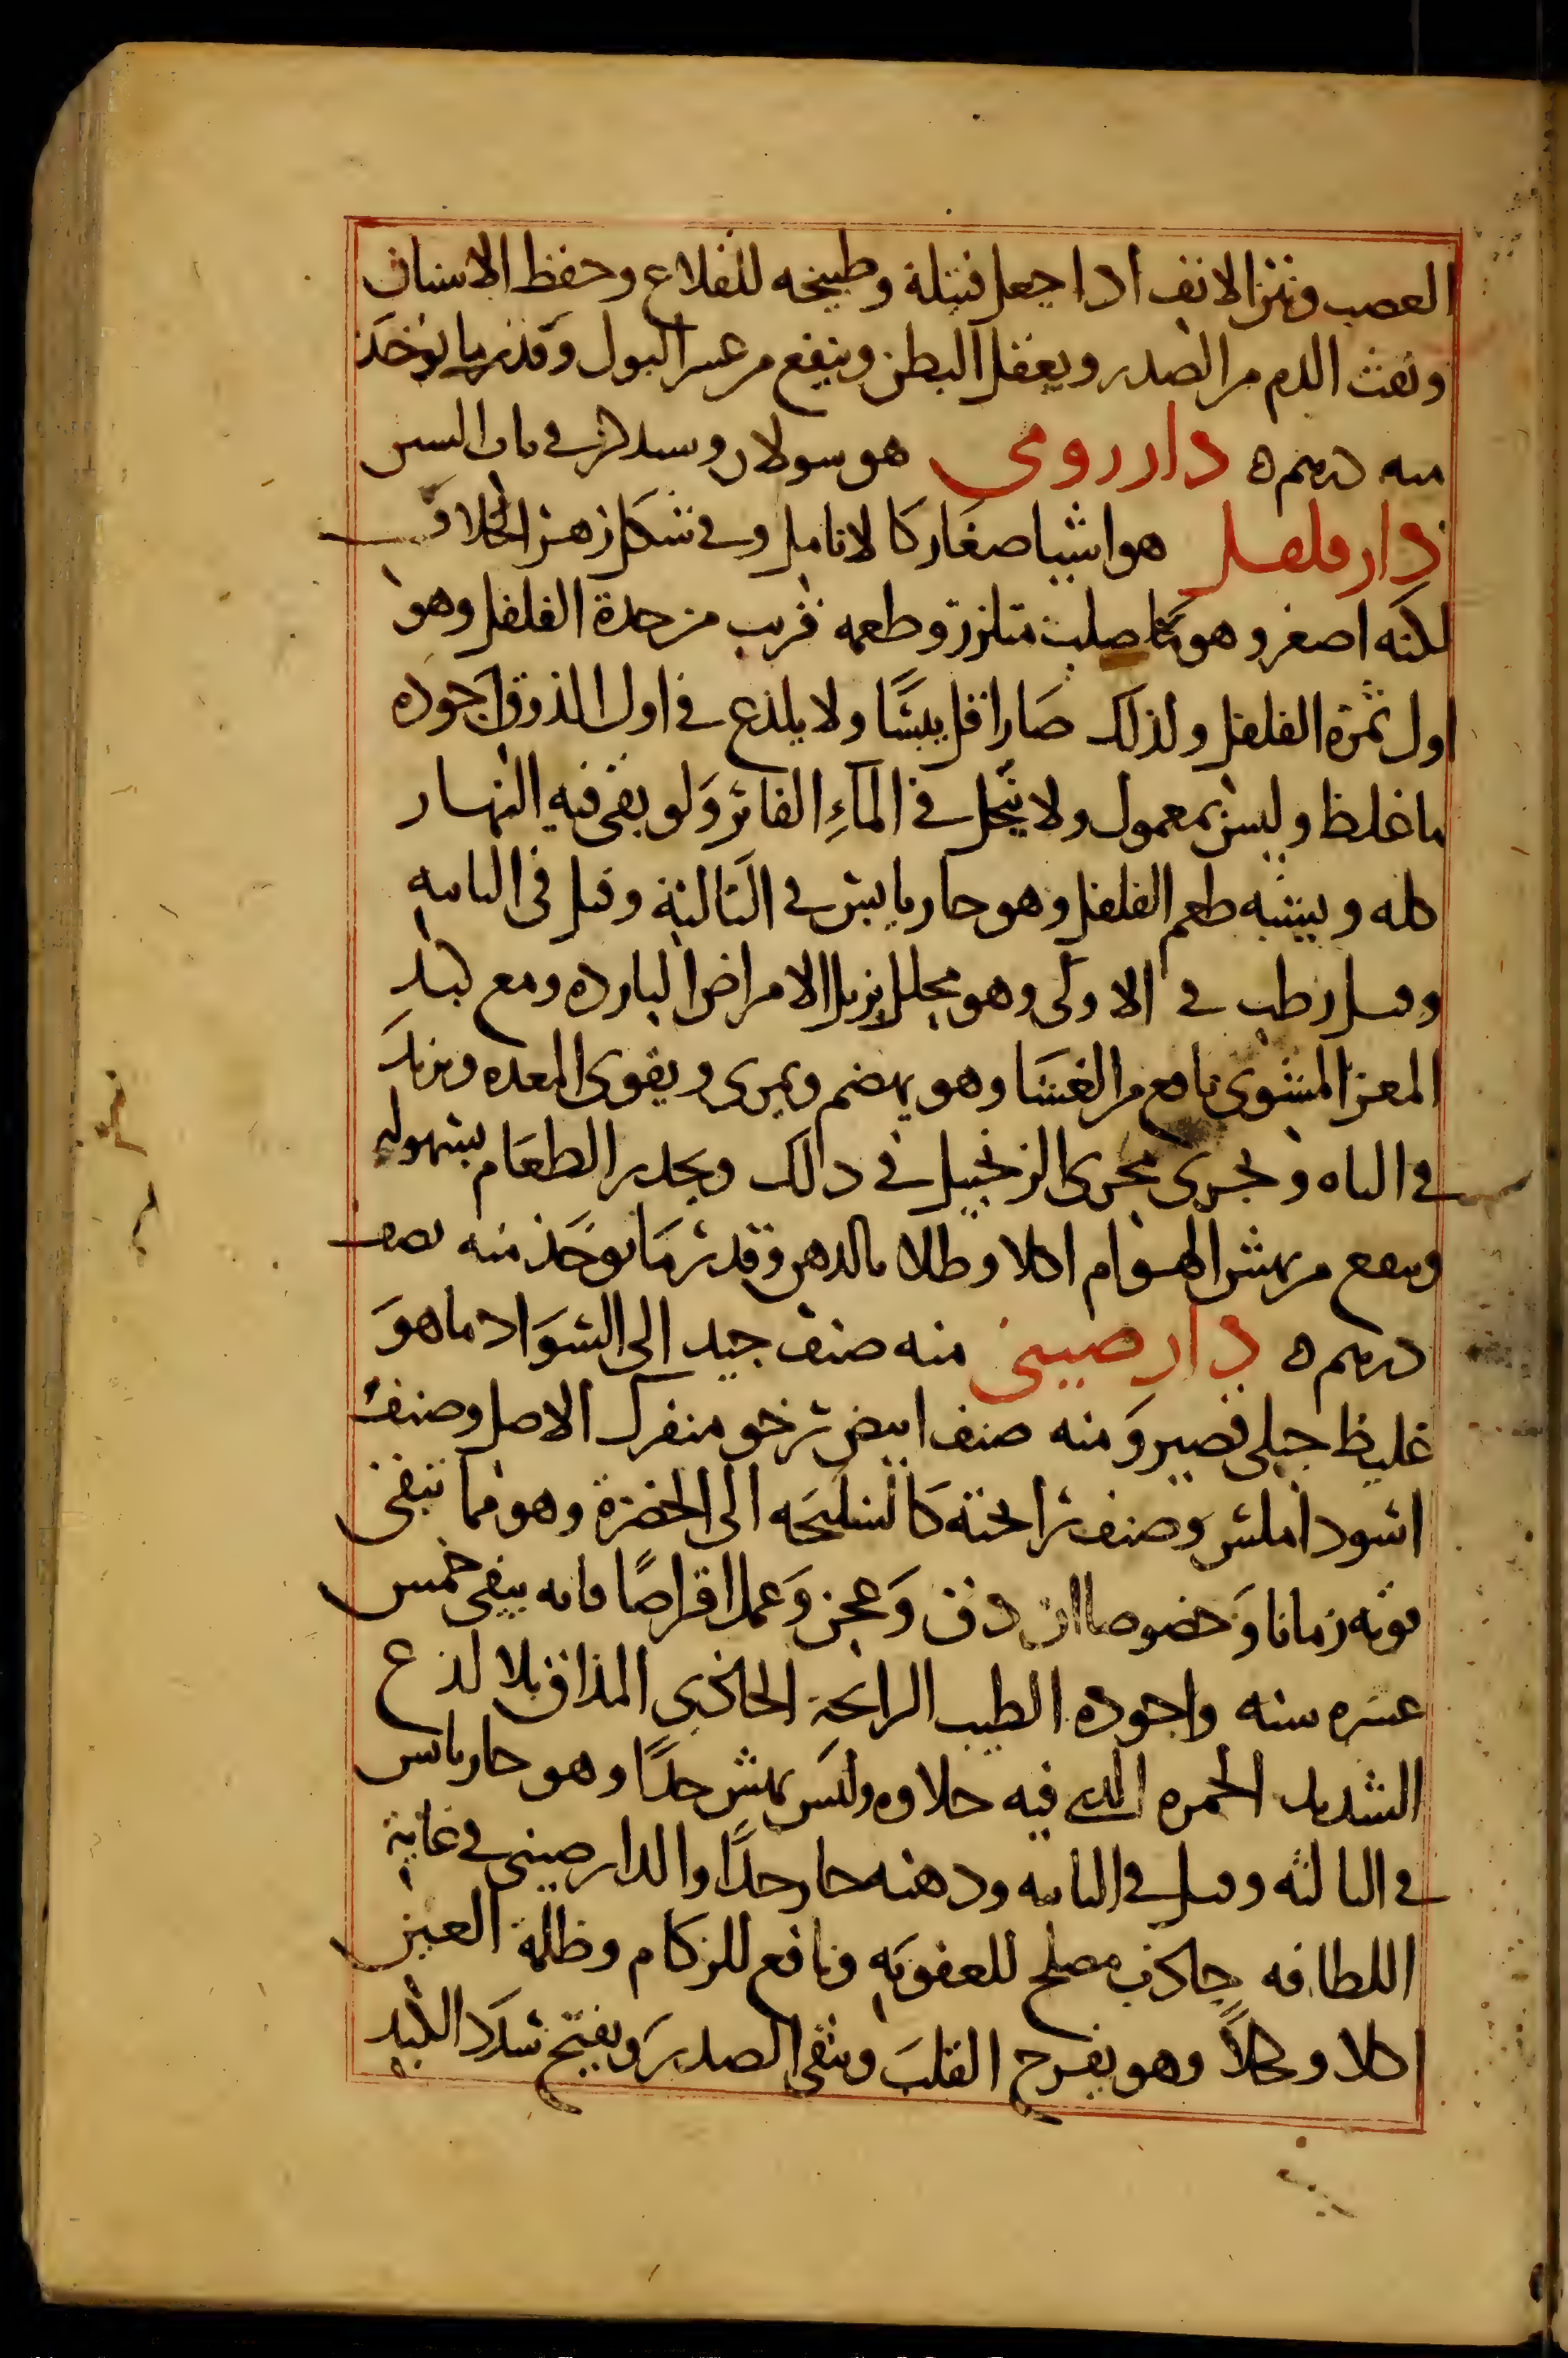 العصب ونتن الانف اذا جعل فتيلة وطبيخه للقلاع وحفظ الاسنان
ونفث الدم من الصدر ويعقل البطن وينفع من عسر البول وقدر ما يوخذ
منه درهم ه دار رومي هو سولان وسيذكر في باب السين
دار فلفل هو اشيا صغار كالانامل وفي شكل زهر الخلاف
لكنه اصغر وهو صلب متلزز وطعمه قريب من حدة الفلفل وهو
اول ثمرة الفلفل ولذلك صار اقل يبسًا ولا يلذع في اول المذوق اجوده
ما غلظ وليس بمعمول ولا ينحل في المآءِ الفاتر وَلو بقى فيه النهار
كله ويشبه طعم الفلفل وهو حار يابس في الثالثة وقيل في الثانيه
وقيل رطب في الاولى وهو محلل يزيل الامراض البارده ومع كبد
المعز المشوى نافع من الغشا وهو يهضم ويمرى ويقوى المعده ويزيد
في الباه ويجرى مجرى الزنجبيل في ذالك ويحدر الطعام بسهوله
وينفع من نهش الهوام اكلا وطلا بالدهن وقدر ما يوخذ منه نصف
درهم ه دار صيني منه صنف جيد الى السواد ما هوَ
غليظ جبلي قصير وَمنه صنف ابيض رخو منفرك الاصل وصنف
اسود املس وصنف رائحته كالسليخه الى الخضرة وهو مما تبقى
قوته زمانا وَخصوصا ان دق وَعجن وَعمل اقراصًا فانه يبقى خمس
عشره سنه واجوده الطيب الرائحة الحاذى المذاق بلا لذع
الشديد الحمره الذي فيه حلاوه وليس بهش جدًا وهو حار يابس
في الثالثه وقيل في الثانيه ودهنه حار جدًا والدار صيني في غاية
اللطافه جاذب مصلح للعفونه ونافع للزكام وظلمة العين
اكلا وكحلًا وهو يفرح القلبَ وينقى الصدرَ ويفتح سُدَد الكبد